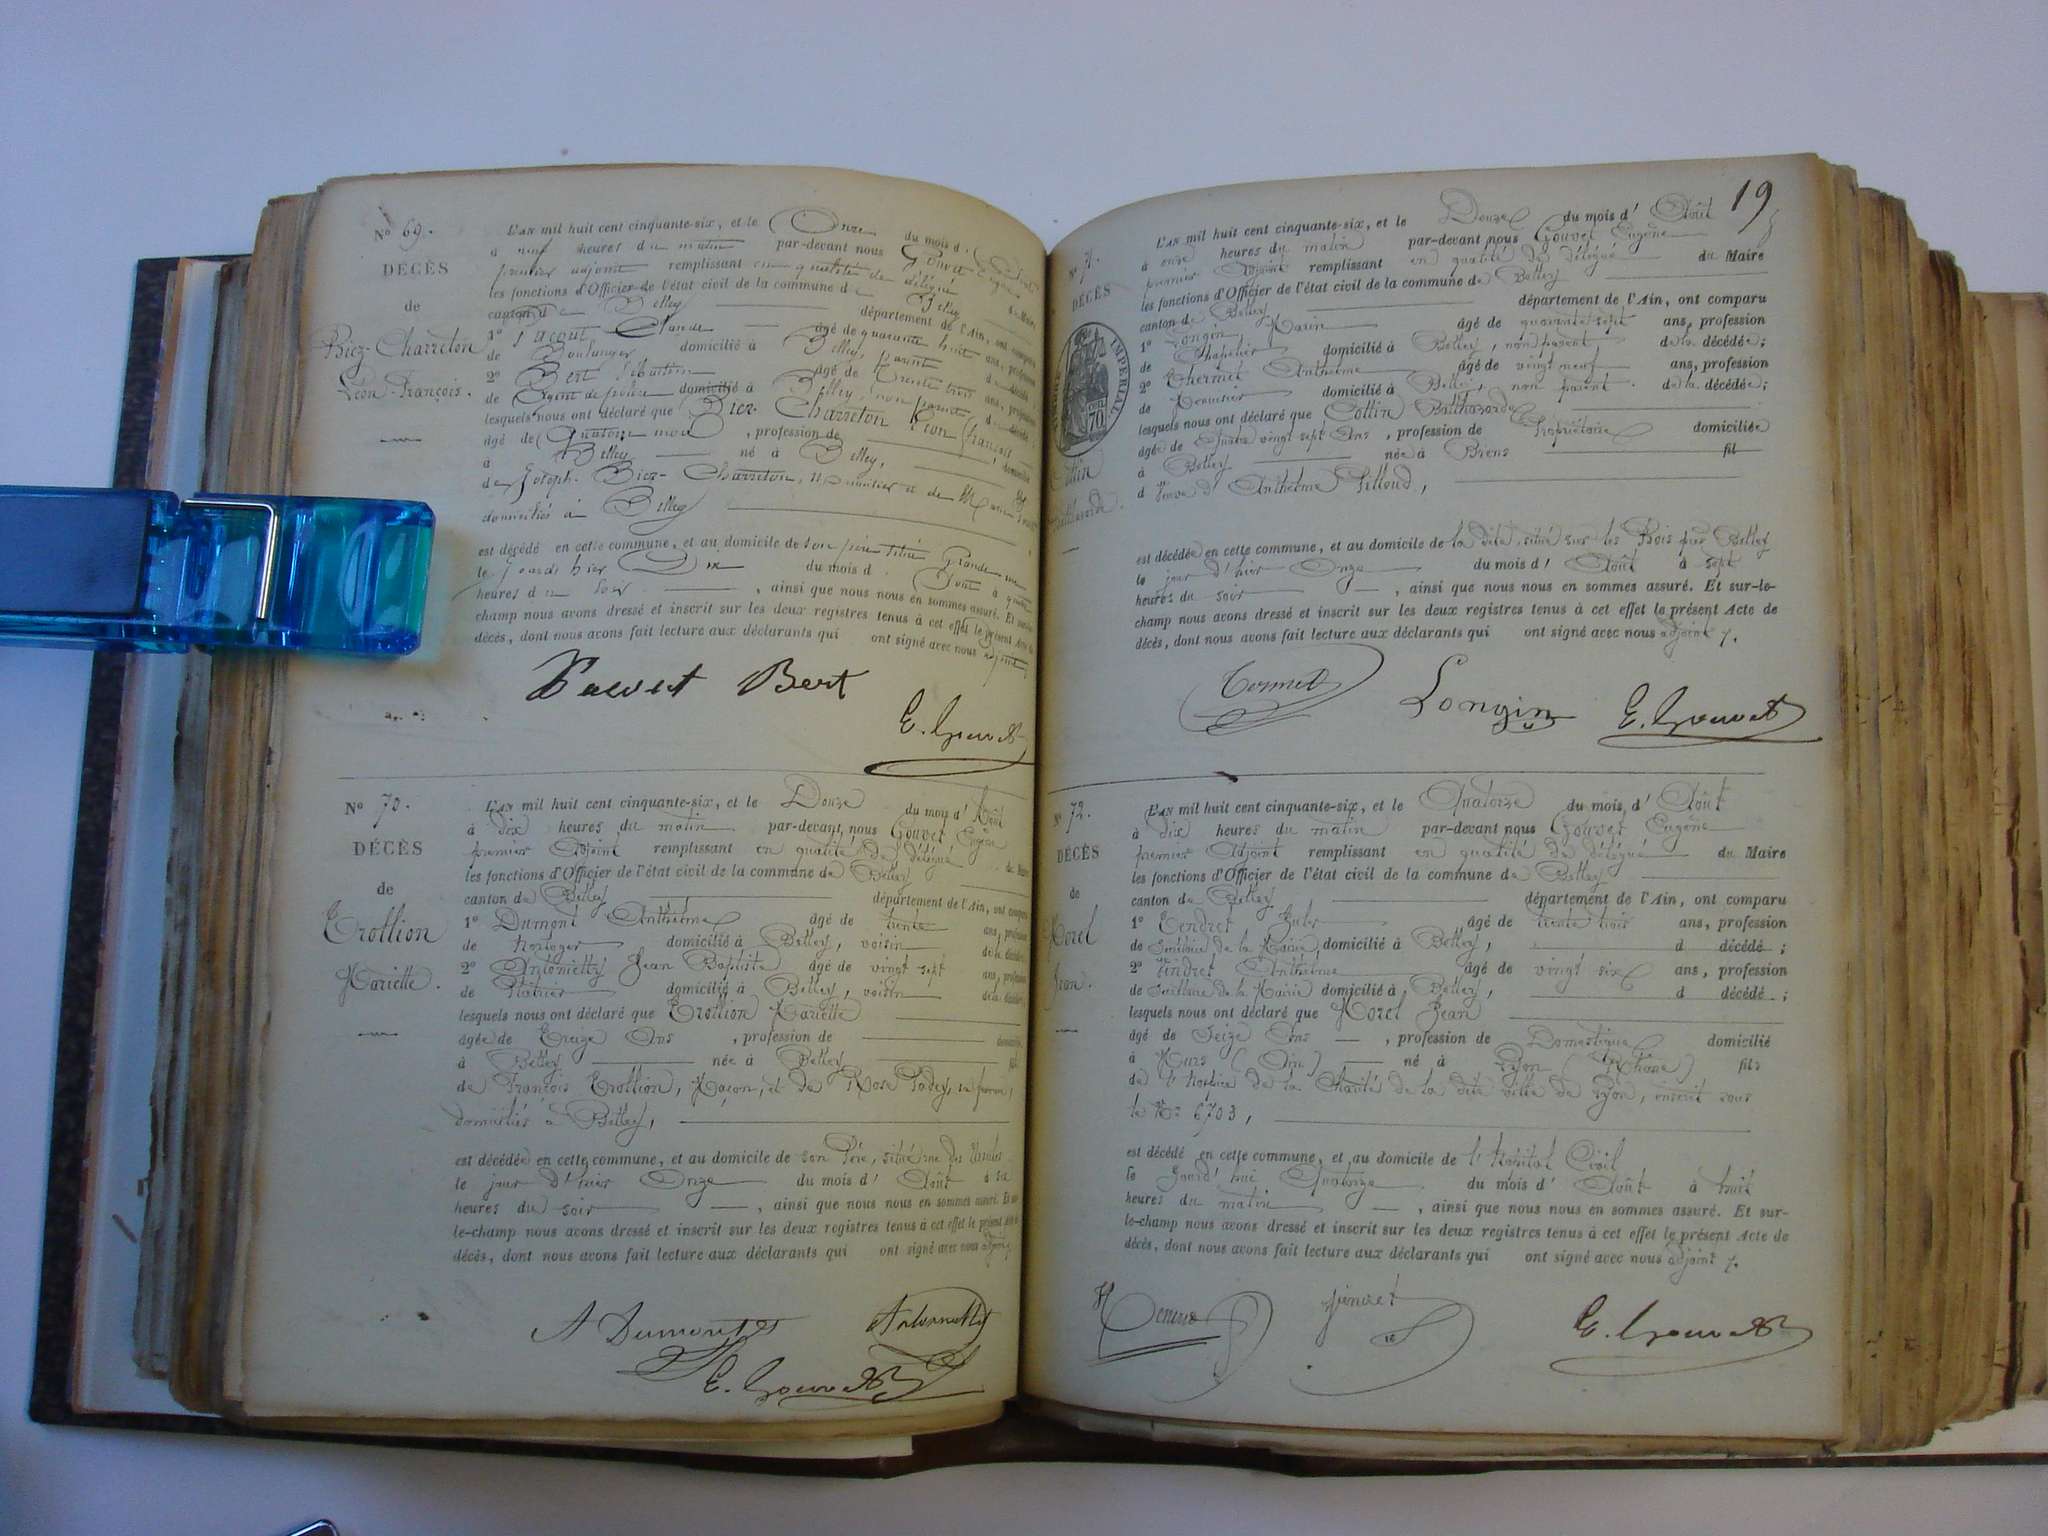 N° 69.
DÉCÈS
de
Biez-Charreton
Léon-François.
L'AN mil huit cent cinquante-six, et le Onze du mois d'
à neuf heures du matin par-devant nous Gouvet
premier adjoint remplissant en qualité de délégué
les fonctions d'Officier de l'état civil de la commune de Belley
canton de Belley département de l'Ain, ont comparu
1° Claude âgé de quarante huit ans, profession
de Boulanger domicilié à Belley,
2° Bert âgé de trente trois ans, profession
de Agent de police domicilié à Belley, non parent
lesquels nous ont déclaré que Biez-Charreton Léon François
âgé de Quatorze mois, profession de
à Belley né à Belley,
de Joseph Biez-Charreton, et de Marie
domiciliés à Belley
est décédé en cette commune, et au domicile de son père situé Grande rue
le jour d'hier Dix du mois d' Août à
heures du soir, ainsi que nous nous en sommes assuré. Et sur-le-
champ nous avons dressé et inscrit sur les deux registres tenus à cet effet le présent Acte de
décès, dont nous avons fait lecture aux déclarants qui ont signé avec nous adjoint
Bert
E. Gouvet
N° 70.
DÉCÈS
de
Trollion
Mariette.
L'AN mil huit cent cinquante-six, et le Douze du mois d' Août
à dix heures du matin par-devant nous Gouvet Eugène
premier Adjoint remplissant en qualité de délégué du Maire
les fonctions d'Officier de l'état civil de la commune de Belley
canton de Belley département de l'Ain, ont comparu
1° Dumont Anthelme âgé de trente ans, profession
de horloger domicilié à Belley, voisin de la décédée
2° Antonietty Jean Baptiste âgé de vingt sept ans, profession
de Plâtrier domicilié à Belley, voisin de la décédée
lesquels nous ont déclaré que Trollion Mariette
âgée de Treize Ans, profession de
à Belley née à Belley
de François Trollion, Maçon, et de Rose sa femme,
domiciliés à Belley,
est décédée en cette commune, et au domicile de son Père, situé rue des
le jour d'hier Onze du mois d' Août à six
heures du soir, ainsi que nous nous en sommes assuré. Et sur-
le-champ nous avons dressé et inscrit sur les deux registres tenus à cet effet le présent Acte de
décès, dont nous avons fait lecture aux déclarants qui ont signé avec nous adjoint
A Dumont Antonietty
E. Gouvet
19
N° 71.
DÉCÈS
TIMBRE IMPÉRIAL
70
Collin
L'AN mil huit cent cinquante-six, et le Douze du mois d' Août
à onze heures du matin par-devant nous Gouvet Eugène
premier Adjoint remplissant en qualité de délégué du Maire
les fonctions d'Officier de l'état civil de la commune de Belley
canton de Belley département de l'Ain, ont comparu
1° Longin Marin âgé de quarante sept ans, profession
de Chapelier domicilié à Belley, non parent de la décédée;
2° Thermet Anthelme âgé de vingt neuf ans, profession
de Menuisier domicilié à Belley, non parent de la décédée;
lesquels nous ont déclaré que Collin Balthazarde
âgée de Quatre vingt sept Ans, profession de Propriétaire domiciliée
à Belley née à Brens fil
d Veuve d'Anthelme Billoud,
est décédée en cette commune, et au domicile de la dite, situé sur les Bois près Belley
le jour d'hier Onze du mois d' Août à sept
heures du soir, ainsi que nous nous en sommes assuré. Et sur-le-
champ nous avons dressé et inscrit sur les deux registres tenus à cet effet le présent Acte de
décès, dont nous avons fait lecture aux déclarants qui ont signé avec nous adjoint
Longin E. Gouvet
N° 72.
DÉCÈS
de
Morel
Jean.
L'AN mil huit cent cinquante-six, et le Quatorze du mois d' Août
à dix heures du matin par-devant nous Gouvet Eugène
premier Adjoint remplissant en qualité de délégué du Maire
les fonctions d'Officier de l'état civil de la commune de Belley
canton de Belley département de l'Ain, ont comparu
1° Tendret Jules âgé de trente trois ans, profession
de Secrétaire de la Mairie, domicilié à Belley, d décédé;
2° Anthelme âgé de vingt six ans, profession
de Secrétaire de la Mairie domicilié à Belley, d décédé;
lesquels nous ont déclaré que Morel Jean
âgé de Seize Ans, profession de Domestique domicilié
à Murs (Ain) né à Lyon (Rhône) fils
de l'Hospice de la Charité de la dite ville de Lyon, inscrit sous
le N° 6703,
est décédé en cette commune, et au domicile de l'Hôpital Civil
le jourd'hui Quatorze du mois d' Août à huit
heures du matin, ainsi que nous nous en sommes assuré. Et sur-
le-champ nous avons dressé et inscrit sur les deux registres tenus à cet effet le présent Acte de
décès, dont nous avons fait lecture aux déclarants qui ont signé avec nous adjoint
E. Gouvet